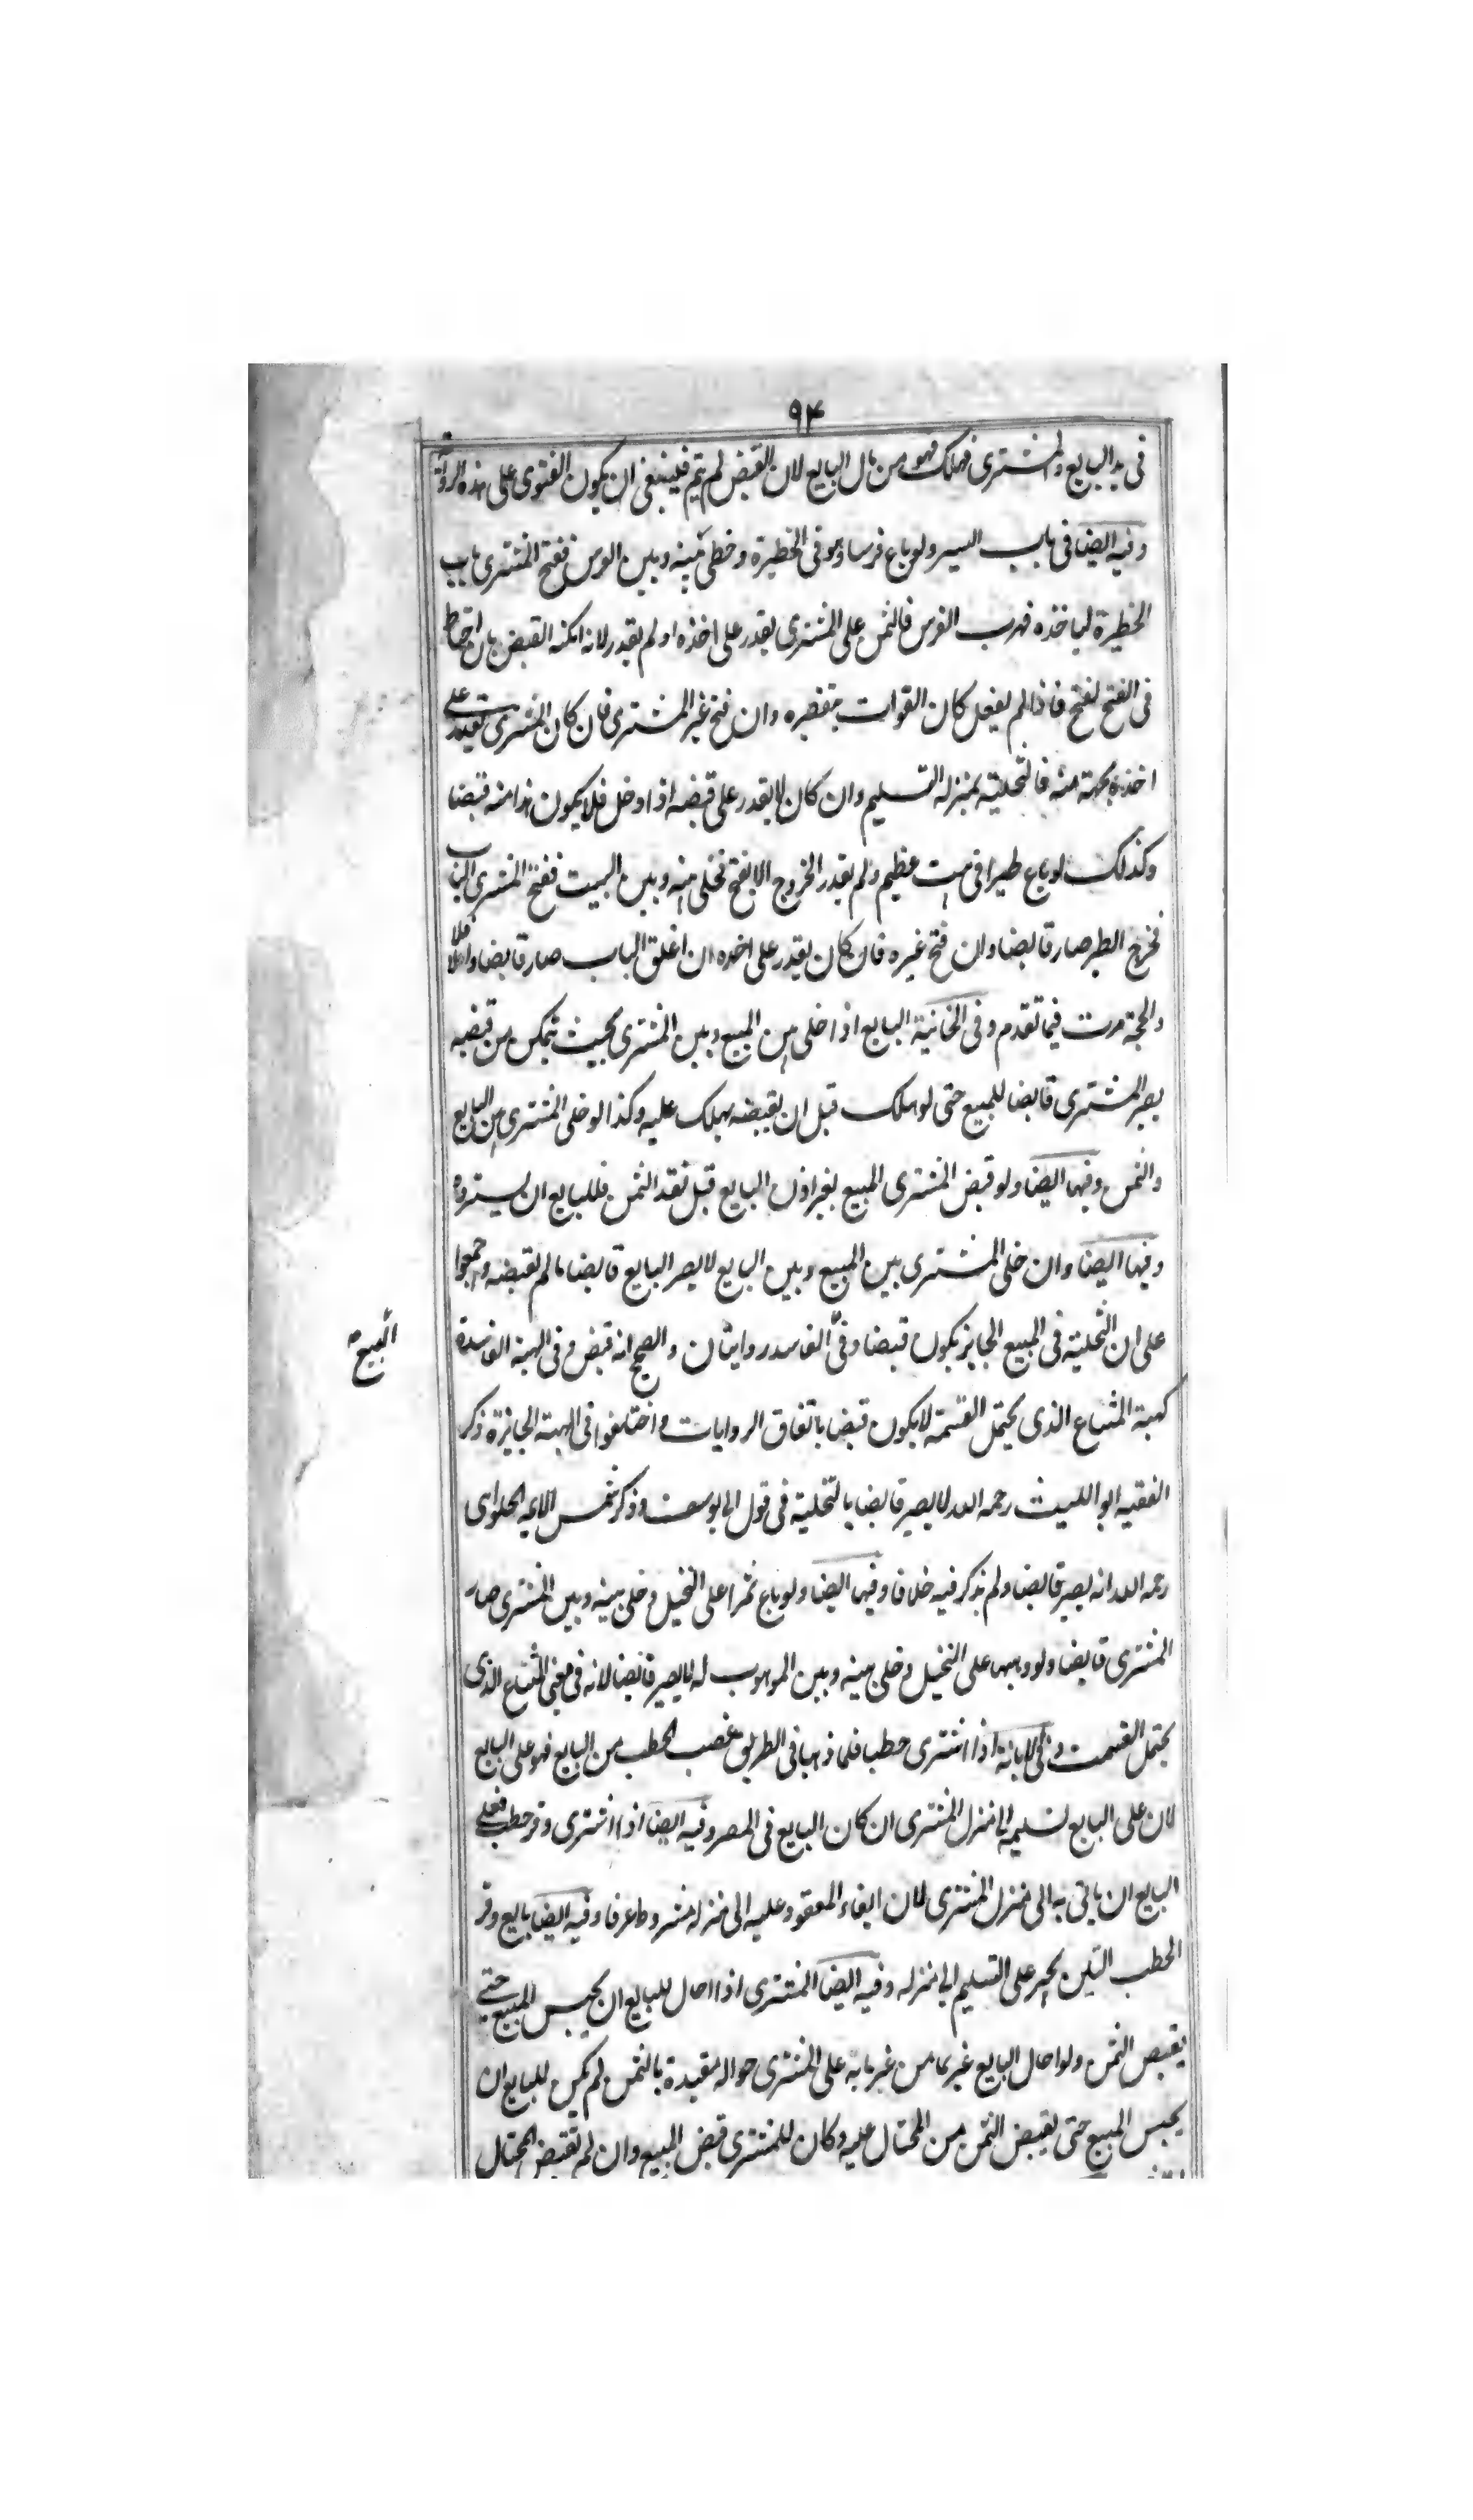 ٩٤
فى يد البايع والمشترى فهلك فهو من مال البايع لان القبض لم يتم فينبغى ان يكون الفتوى على هذه الرواية
وفيه ايضا فى باب السير ولو باع فرسا وهو فى الحظيرة وخلى بينه وبين الفرس ففتح المشترى باب
الحظيرة لياخذه فهرب الفرس فالثمن على المشترى يقدر على اخذه او لم يقدر لانه امكنه القبض بان احتاط
فى الفتح لفتح فاذا لم يفعل كان الفوات بتقصيره وان فتح غير المشترى فان كان المشترى يقدر على
اخذه بجهة منه فالتخلية بمنزلة التسليم وان كان لا يقدر على قبضه اذا دخل فلا يكون هذا منه قبضا
وكذلك لو باع طيرا فى بيت عظيم ولم يقدر الخروج الا بفتح فخلى بينه وبين البيت ففتح المشترى الباب
فخرج الطير صار قابضا وان فتح غيره فان كان يقدر على اخذه ان اغلق الباب صار قابضا والا فلا
والحجة مرت فيما تقدم وفى الخانية البايع اذا خلى بين المبيع وبين المشترى بحيث يتمكن من قبضه
يصير المشترى قابضا للمبيع حتى لو هلك قبل ان يقبضه يهلك عليه وكذا لو خلى المشترى بين البايع
والثمن وفيها ايضا ولو قبض المشترى المبيع بغير اذن البايع قبل نقد الثمن فللبايع ان يسترده
وفيها ايضا وان خلى المشترى بين المبيع وبين البايع لا يصير البايع قابضا ما لم يقبضه واجمعوا
على ان التخلية فى المبيع الجايز يكون قبضا وفى الفاسد روايتان والصحيح انه قبض وفى الهبة الفاسدة
البيع
كهبة المشاع الذى يحتمل القسمة لا يكون قبضا باتفاق الروايات واختلفوا فى الهبة الجايزة ذكر
الفقيه ابو الليث رحمه الله لا يصير قابضا بالتخلية فى قول ابى يوسف وذكر شمس الايمة الحلوانى
رحمه الله انه يصير قابضا ولم يذكر فيه خلافا وفيها ايضا ولو باع ثمرا على النخيل وخلى بينه وبين المشترى صار
المشترى قابضا ولو وهبها على النخيل وخلى بينه وبين الموهوب له لا يصير قابضا لانه فى معنى المشاع الذى
يحتمل القسمت وفى الابانة اذا اشترى حطبا فلما ذهبا فى الطريق غصب الحطب من البايع فهو على البايع
لان على البايع تسليمه الى منزل المشترى ان كان البايع فى المصر وفيه ايضا اذا اشترى وقر حطب فعلى
البايع ان ياتى به الى منزل المشترى لان ايفاء المعقود عليه الى منزله مشروط عرفا وفيه ايضا بايع وقر
الحطب التبن يجبر على التسليم الى منزله وفيه ايضا المشترى اذا احال للبايع ان يحبس المبيع حتى
يقبض الثمن ولو احال البايع غريما من غرمائه على المشترى حوالة مقيدة بالثمن لم يكن للبايع ان
يحبس المبيع حتى يقبض الثمن من المحتال عليه وكان للمشترى قبض المبيع وان لم يقبض المحتال